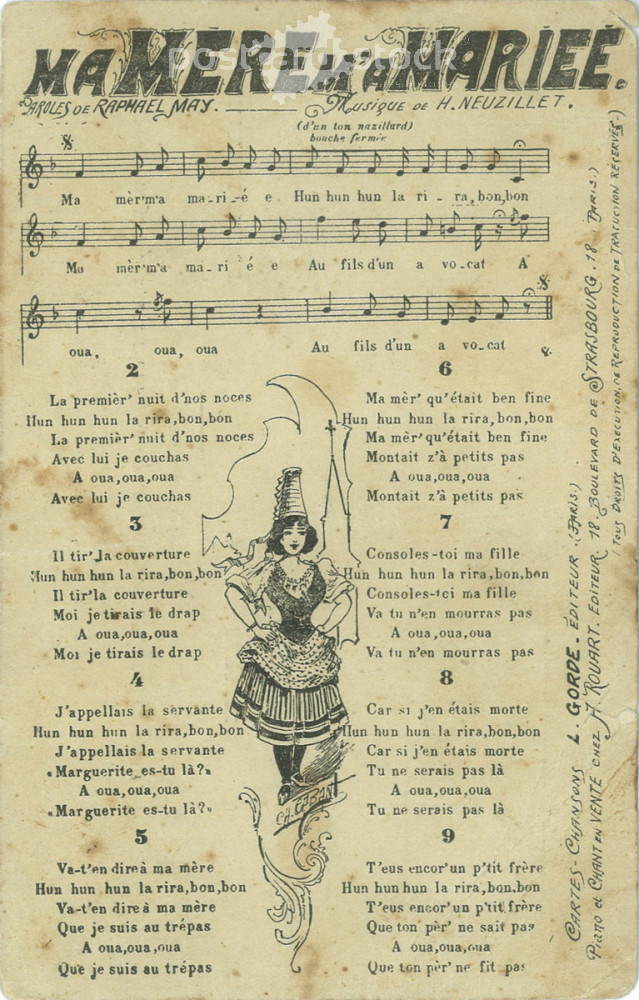 MA MÈRE M'A MARIÉE.
PAROLES DE RAPHAEL MAY. MUSIQUE DE H. NEUZILLET.
(d'un ton nazillard)
bouche fermée
Ma mèr'm'a ma_ri_é e Hun hun hun la ri_ra, bon, bon
Ma mèr'm'a ma_ri_é e Au fils d'un a vo_cat A
oua, oua, oua Au fils d'un a vo_cat
2
La premièr' nuit d'nos noces
Hun hun hun la rira, bon, bon
La premièr' nuit d'nos noces
Avec lui je couchas
A oua, oua, oua
Avec lui je couchas
3
Il tir' la couverture
Hun hun hun la rira, bon, bon
Il tir' la couverture
Moi je tirais le drap
A oua, oua, oua
Moi je tirais le drap
4
J'appellais la servante
Hun hun hun la rira, bon, bon
J'appellais la servante
«Marguerite es-tu là?»
A oua, oua, oua
«Marguerite es-tu là?»
5
Va-t'en dire à ma mère
Hun hun hun la rira, bon, bon
Va-t'en dire à ma mère
Que je suis au trépas
A oua, oua, oua
Que je suis au trépas
6
Ma mèr' qu'était ben fine
Hun hun hun la rira, bon, bon
Ma mèr' qu'était ben fine
Montait z'à petits pas
A oua, oua, oua
Montait z'à petits pas
7
Consoles-toi ma fille
Hun hun hun la rira, bon, bon
Consoles-toi ma fille
Va tu n'en mourras pas
A oua, oua, oua
Va tu n'en mourras pas
8
Car si j'en étais morte
Hun hun hun la rira, bon, bon
Car si j'en étais morte
Tu ne serais pas là
A oua, oua, oua
Tu ne serais pas là
9
T'eus encor' un p'tit frère
Hun hun hun la rira, bon, bon
T'eus encor' un p'tit frère
Que ton pèr' ne sait pas
A oua, oua, oua
Que ton pèr' ne fit pas
CARTES-CHANSONS L. GORDE. ÉDITEUR. (PARIS.)
PIANO et CHANT EN VENTE CHEZ A. ROUART. EDITEUR 18. BOULEVARD DE STRASBOURG. 18 PARIS.)
(TOUS DROITS D'EXECUTION, DE REPRODUCTION DE TRADUCTION RÉSERVÉS.)
postcard stock